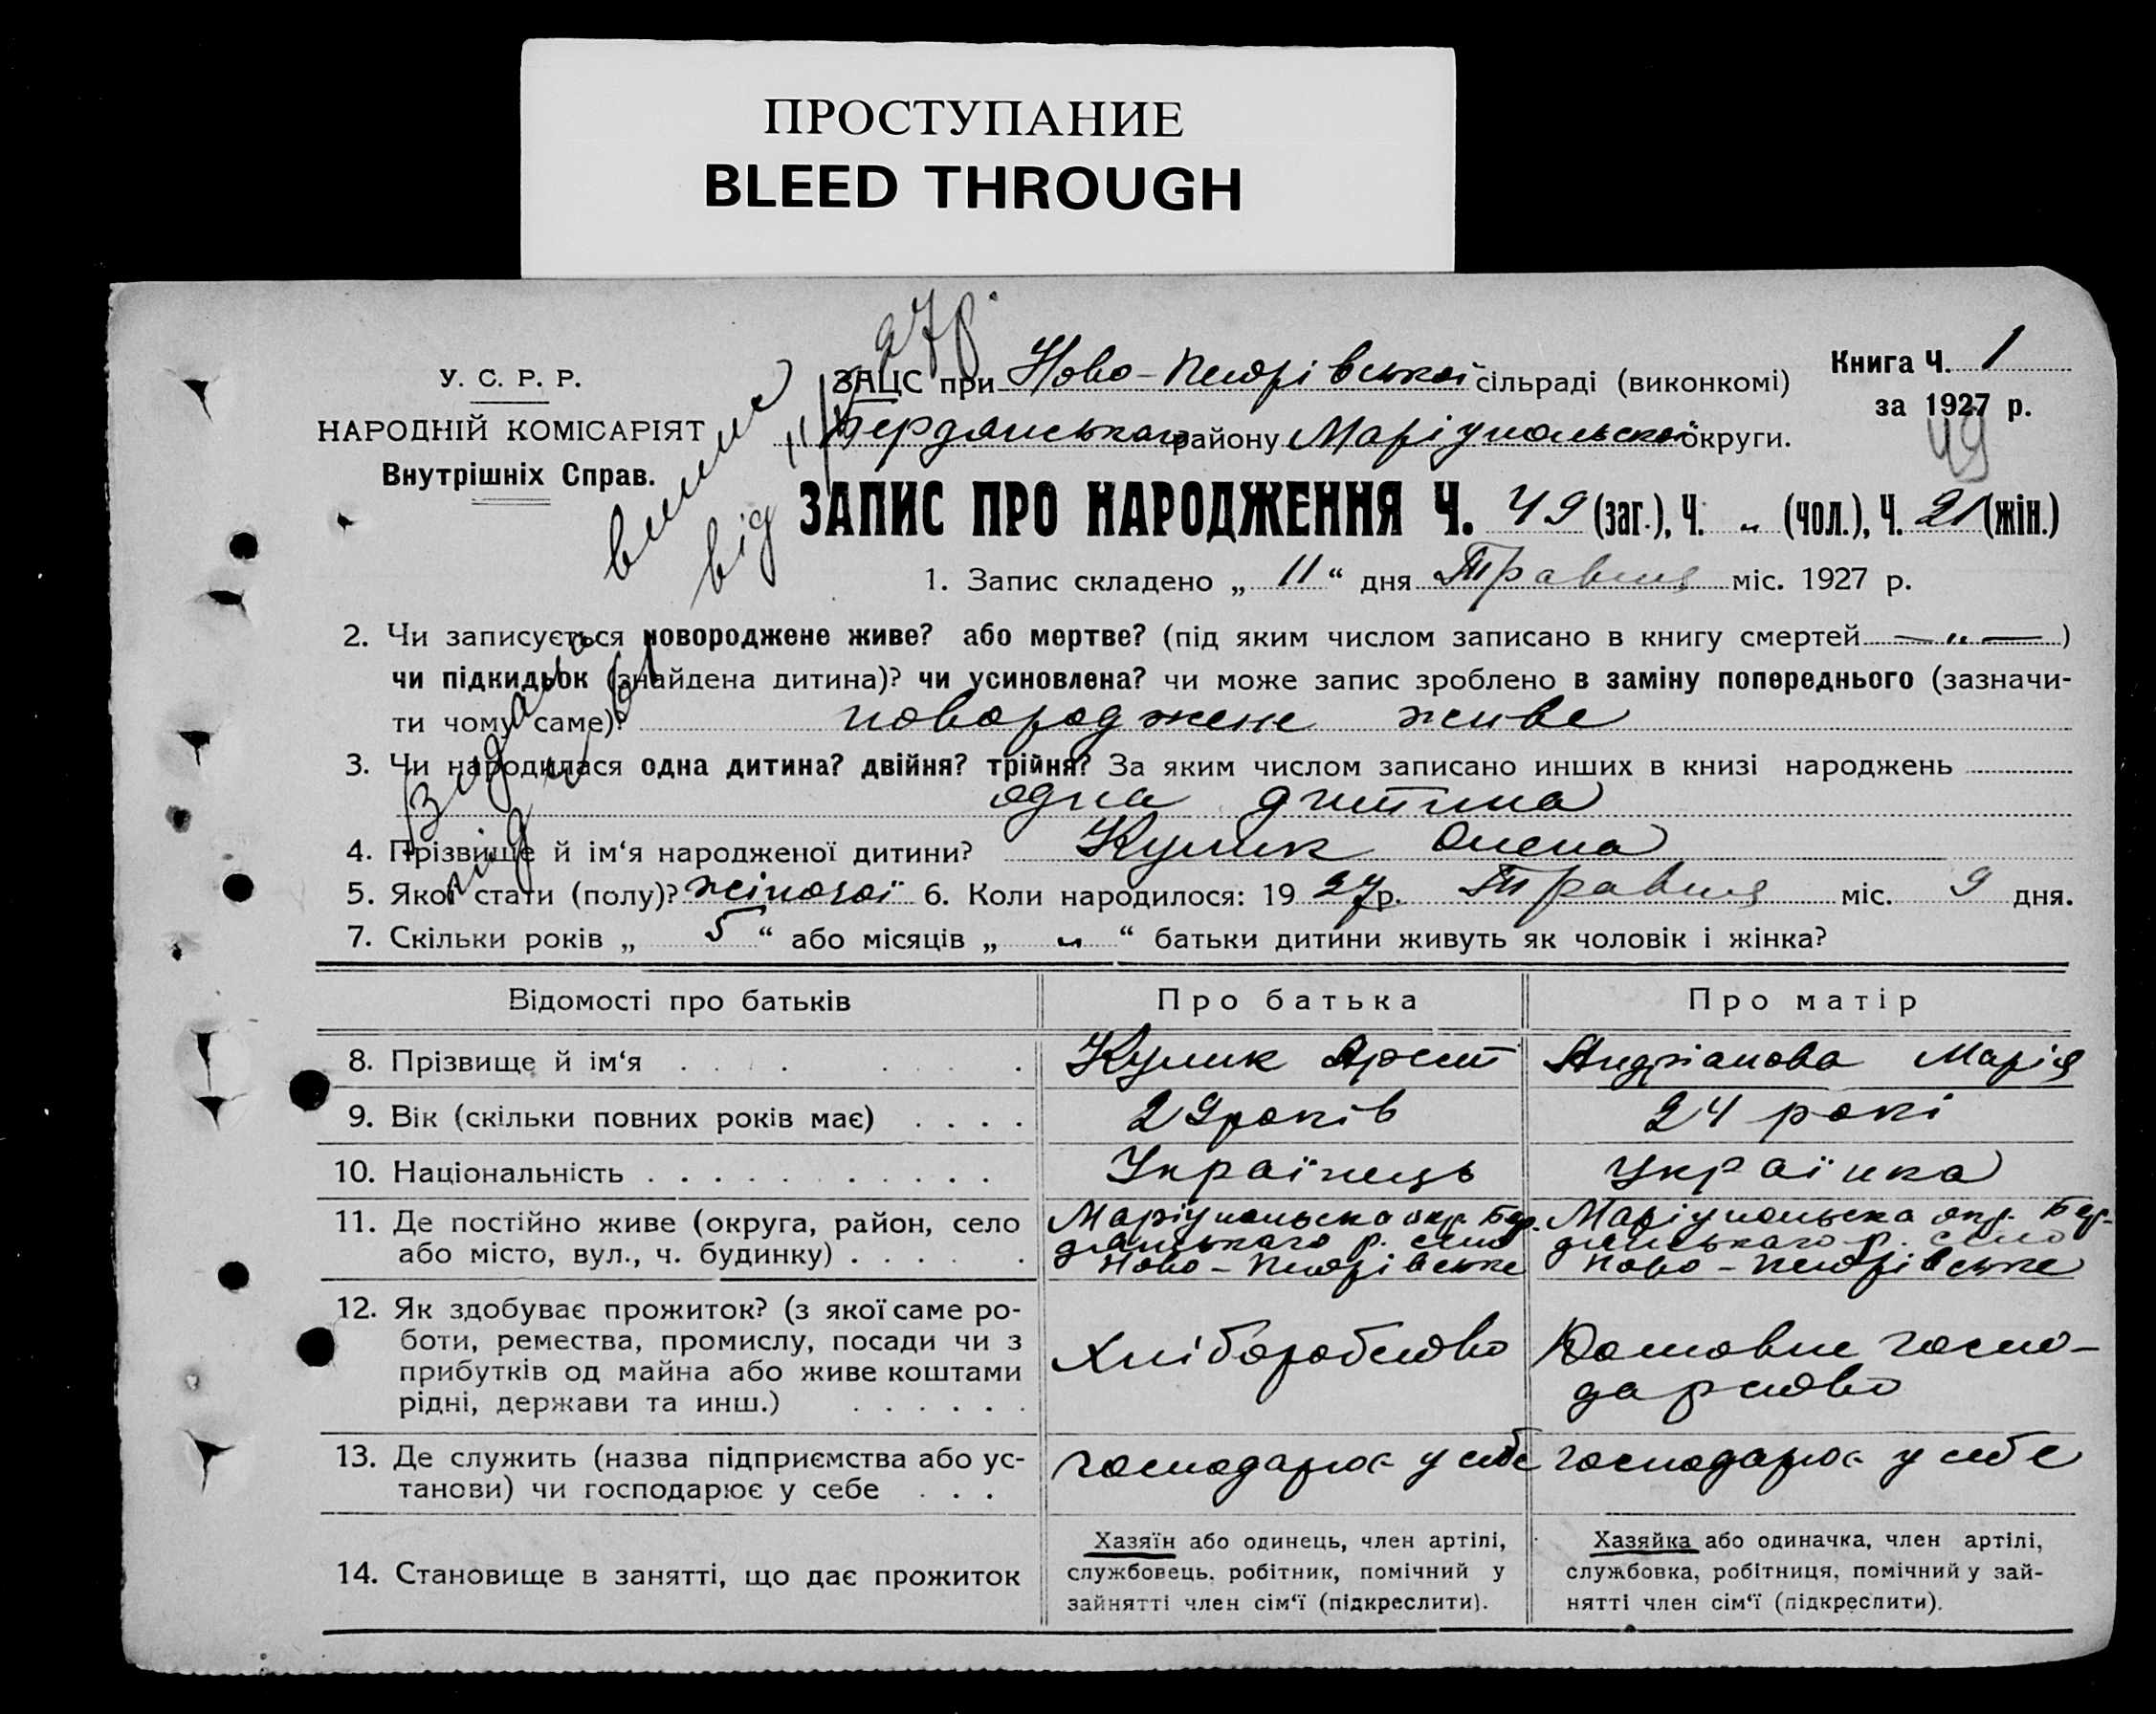 ПРОСТУПАНИЕ
BLEED THROUGH
У. С. Р. Р.
НАРОДНІЙ КОМІСАРІЯТ
Внутрішніх Справ.
27р.
ЗАЦС при Ново-Петрівської сільраді (виконкомі)
Бердянського району Маріупольської округи.
Книга Ч. 1
за 1927 р.
49
ЗАПИС ПРО НАРОДЖЕННЯ Ч. 49 (заг.), Ч. „ (чол.), Ч. 21 (жін.)
від
1. Запис складено „ 11 “ дня Травня міс. 1927 р.
2. Чи записується новороджене живе? або мертве? (під яким числом записано в книгу смертей — „ — )
чи підкидьок (знайдена дитина)? чи усиновлена? чи може запис зроблено в заміну попереднього (зазначи-
ти чому саме)? новороджене живе
3. Чи народилася одна дитина? двійня? трійня? За яким числом записано инших в книзі народжень
одна дитина
4. Прізвище й ім‘я народженої дитини? Кулик Олена
5. Якої стати (полу)? жіночої 6. Коли народилося: 19 27 р. Травня міс. 9 дня.
7. Скільки років „ 5 “ або місяців „ „ “ батьки дитини живуть як чоловік і жінка?
Відомості про батьків Про батька Про матір
8. Прізвище й ім‘я . . . . . . . . Кулик Андріанова Марія
9. Вік (скільки повних років має) . . . . 29 років 24 рокі
10. Національність . . . . . . . . . . . Українець Українка
11. Де постійно живе (округа, район, село
або місто, вул., ч. будинку) . . . . .
Маріупольска окр. Бер-
дянського р. село
Ново-Петрівське
Маріупольска окр. Бер-
дянського р. село
Ново-Петрівське
12. Як здобуває прожиток? (з якої саме ро-
боти, ремества, промислу, посади чи з
прибутків од майна або живе коштами
рідні, держави та инш.) . . . . . .
Хліборобство
Домовне госпо-
дарство
13. Де служить (назва підприємства або ус-
танови) чи господарює у себе . . .
господарює у себе
господарює у себе
14. Становище в занятті, що дає прожиток
Хазяїн або одинець, член артілі,
службовець, робітник, помічний у
зайнятті член сім‘ї (підкреслити).
Хазяйка або одиначка, член артілі,
службовка, робітниця, помічний у зай-
нятті член сім‘ї (підкреслити).